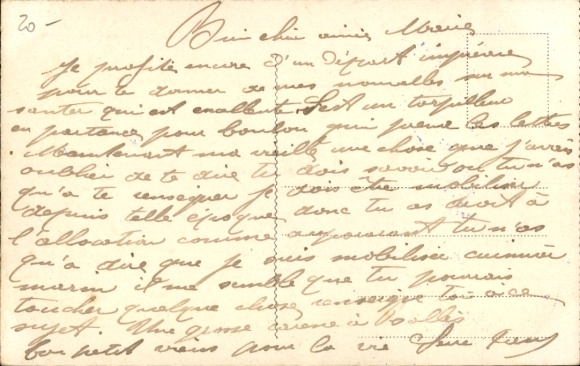 20-
Bien chère amie Marie
Je profite encore d'un départ imprévu
pour te donner de mes nouvelles sur ma
santer qui est excellente. Sest un torpilleur
en partance pour Toulon qui prene les lettres
. Maintenant ma vieille une chose que j'avais
oublier de te dire tu dois savoir ou tu n'as
qu'a te renseigner je dois être mobilisé
depuis telle époque donc tu as droit à
l'allocation comme tu n'as
qu'a dire que je suis mobilisé cuisinier
marin il me semble que tu pourrais
toucher quelque chose renseigne toi à ce
sujet. Une grosse à
ton petit vieux pour la vie